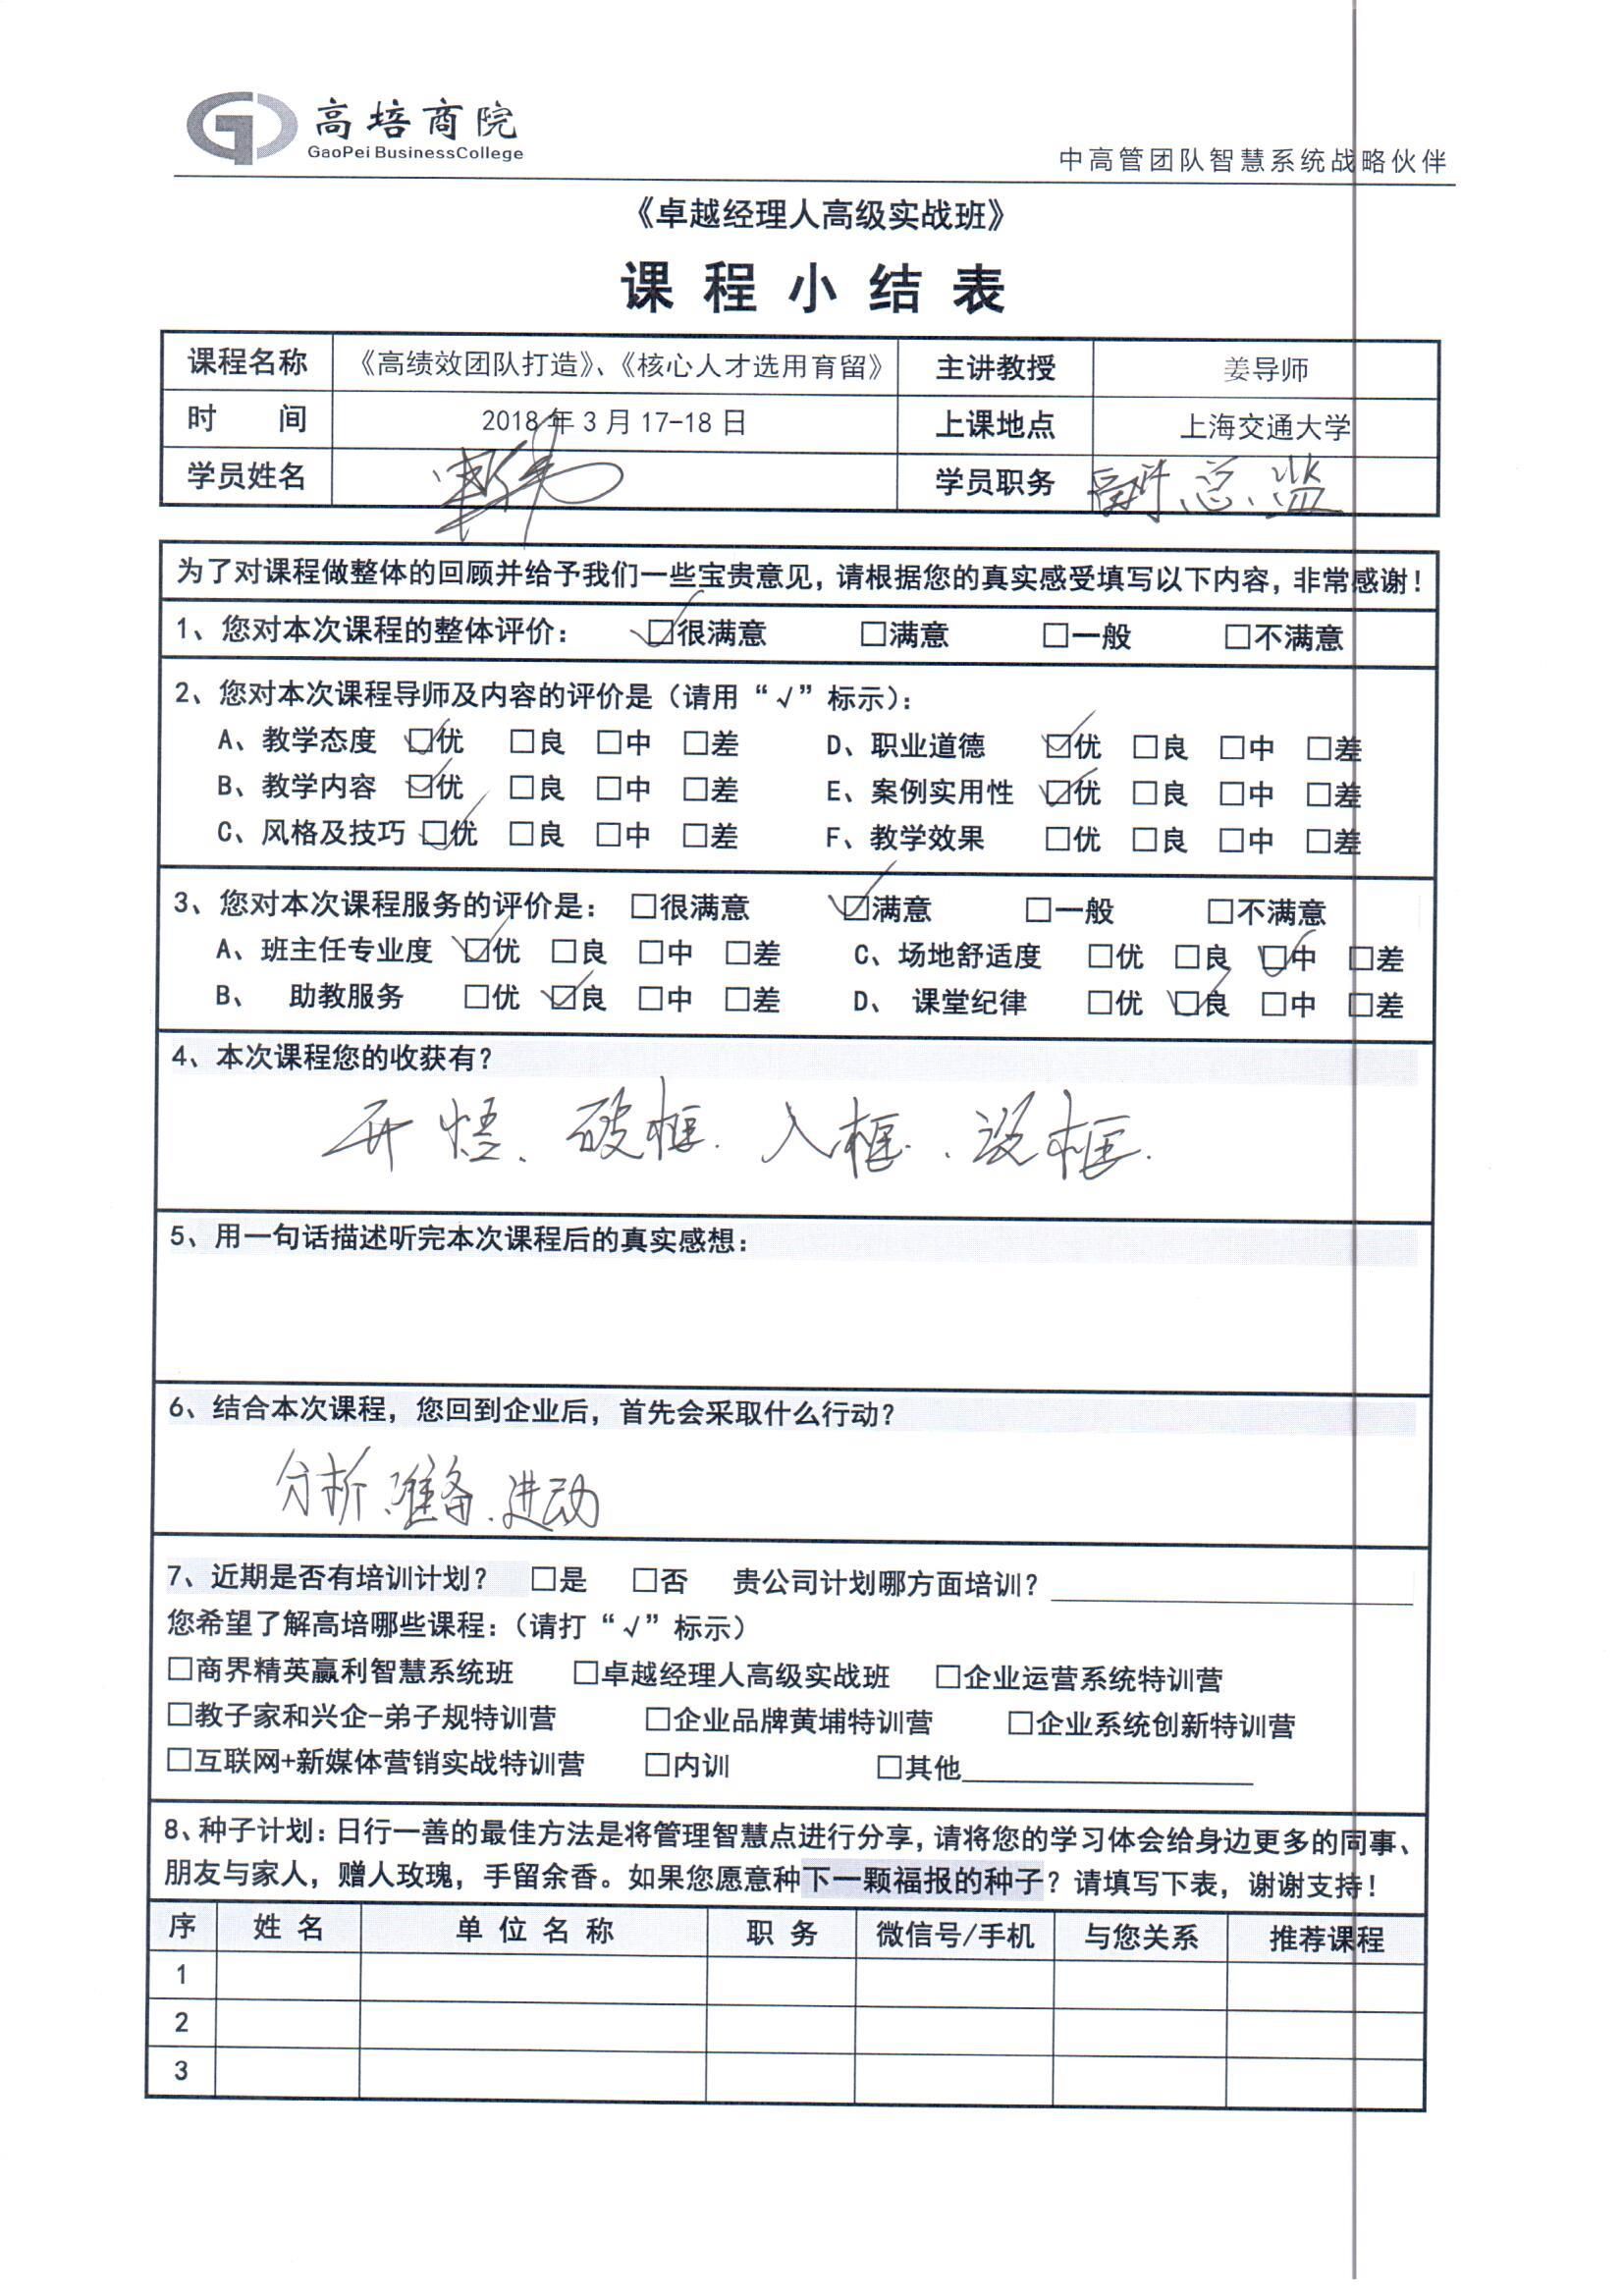 高培商院
GaoPei BusinessCollege
中高管团队智慧系统战略伙伴
《卓越经理人高级实战班》
课程小结表
课程名称 《高绩效团队打造》、《核心人才选用育留》 主讲教授 姜导师
时 间 2018年3月17-18日 上课地点 上海交通大学
学员姓名 学员职务 副总监
为了对课程做整体的回顾并给予我们一些宝贵意见，请根据您的真实感受填写以下内容，非常感谢！
1、您对本次课程的整体评价： ☑很满意 □满意 □一般 □不满意
2、您对本次课程导师及内容的评价是（请用“√”标示）：
A、教学态度 ☑优 □良 □中 □差 D、职业道德 ☑优 □良 □中 □差
B、教学内容 ☑优 □良 □中 □差 E、案例实用性 ☑优 □良 □中 □差
C、风格及技巧 ☑优 □良 □中 □差 F、教学效果 □优 □良 □中 □差
3、您对本次课程服务的评价是： □很满意 ☑满意 □一般 □不满意
A、班主任专业度 ☑优 □良 □中 □差 C、场地舒适度 □优 □良 ☑中 □差
B、 助教服务 □优 ☑良 □中 □差 D、 课堂纪律 □优 ☑良 □中 □差
4、本次课程您的收获有？
开悟、破框.入框.、设框.
5、用一句话描述听完本次课程后的真实感想：
6、结合本次课程，您回到企业后，首先会采取什么行动？
分析、准备、进动
7、近期是否有培训计划？ □是 □否 贵公司计划哪方面培训？
您希望了解高培哪些课程：（请打“√”标示）
□商界精英赢利智慧系统班 □卓越经理人高级实战班 □企业运营系统特训营
□教子家和兴企-弟子规特训营 □企业品牌黄埔特训营 □企业系统创新特训营
□互联网+新媒体营销实战特训营 □内训 □其他
8、种子计划：日行一善的最佳方法是将管理智慧点进行分享，请将您的学习体会给身边更多的同事、
朋友与家人，赠人玫瑰，手留余香。如果您愿意种下一颗福报的种子？请填写下表，谢谢支持！
序 姓名 单位名称 职务 微信号/手机 与您关系 推荐课程
1
2
3